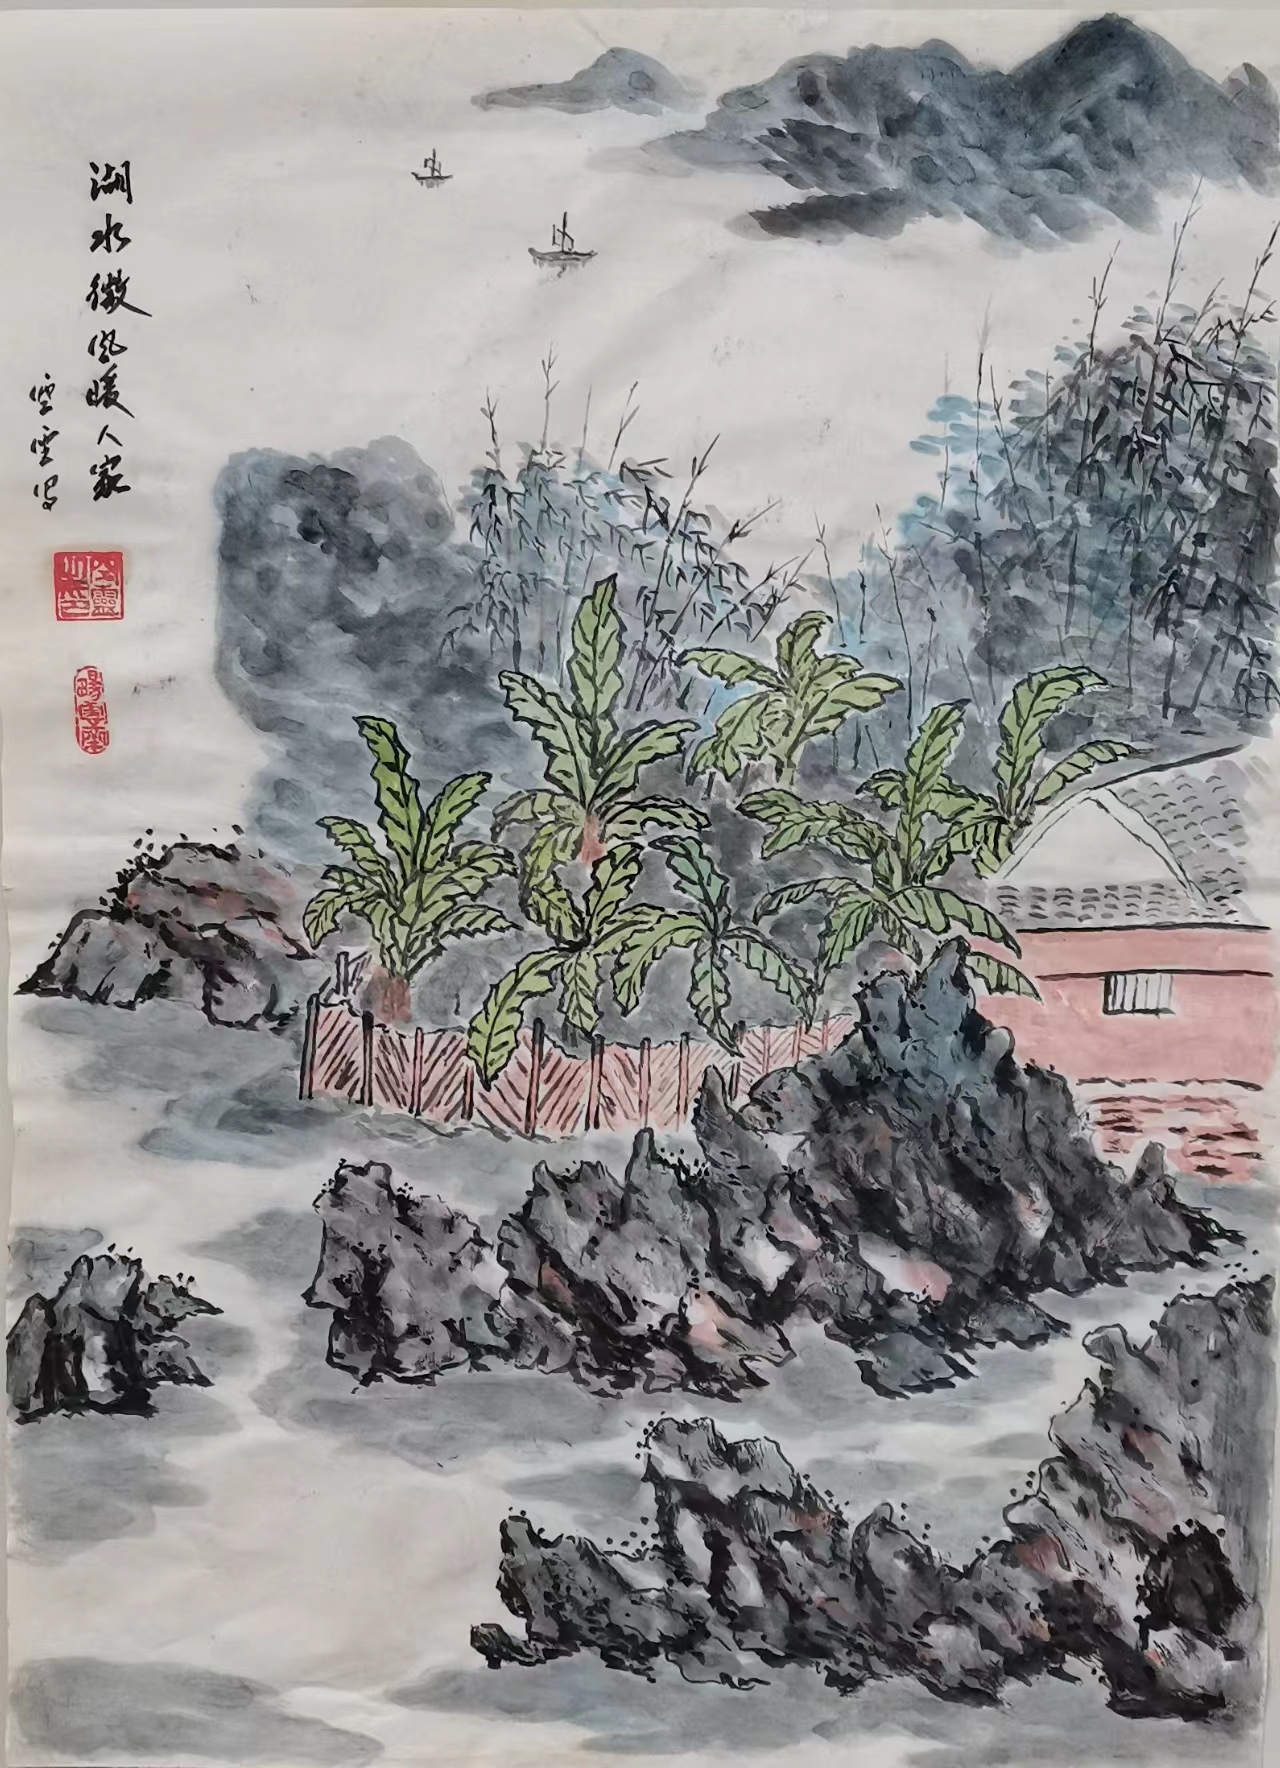 湖水微风暖人家
空雲写